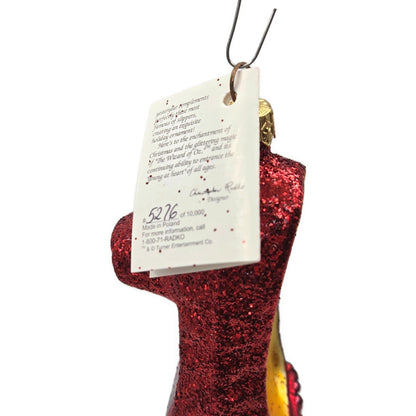 yesteryear complements
perfectly these most
famous of slippers,
creating an exquisite
holiday ornament!
Here's to the enchantment of
Christmas and the glittering magic
of "The Wizard of Oz,"™ and its
continuing ability to entrance the
"young at heart" of all ages.
Christopher Radko
Designer
# 5276 of 10,000
Made in Poland
For more information, call
1-800-71-RADKO
™ & © Turner Entertainment Co.